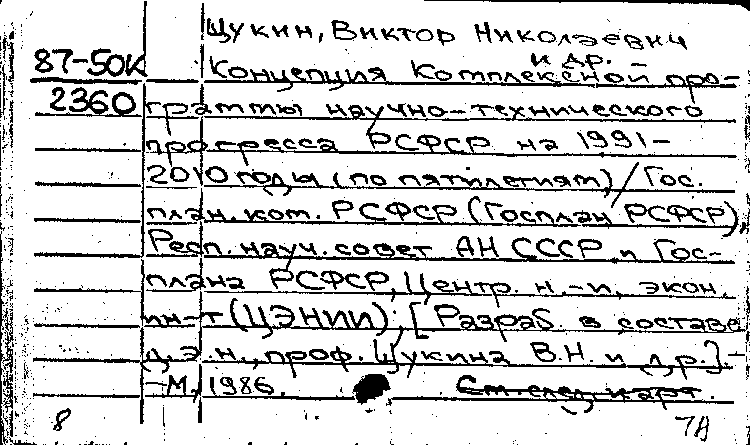 Щукин, Виктор Николаевич
и др. –
87-50к Концепция Комплексной про-
2360 граммы научно-технического
прогресса РСФСР на 1991–
2010 годы (по пятилетиям) / Гос.
план. ком. РСФСР (Госплан РСФСР),
Респ. науч. совет АН СССР и Гос-
плана РСФСР, Центр. н.-и. экон.
ин-т (ЦЭНИИ); [Разраб. в составе
д.э.н., проф. Щукина В.Н. и др.]. –
– М., 1986.
См. след. карт.
8 7А